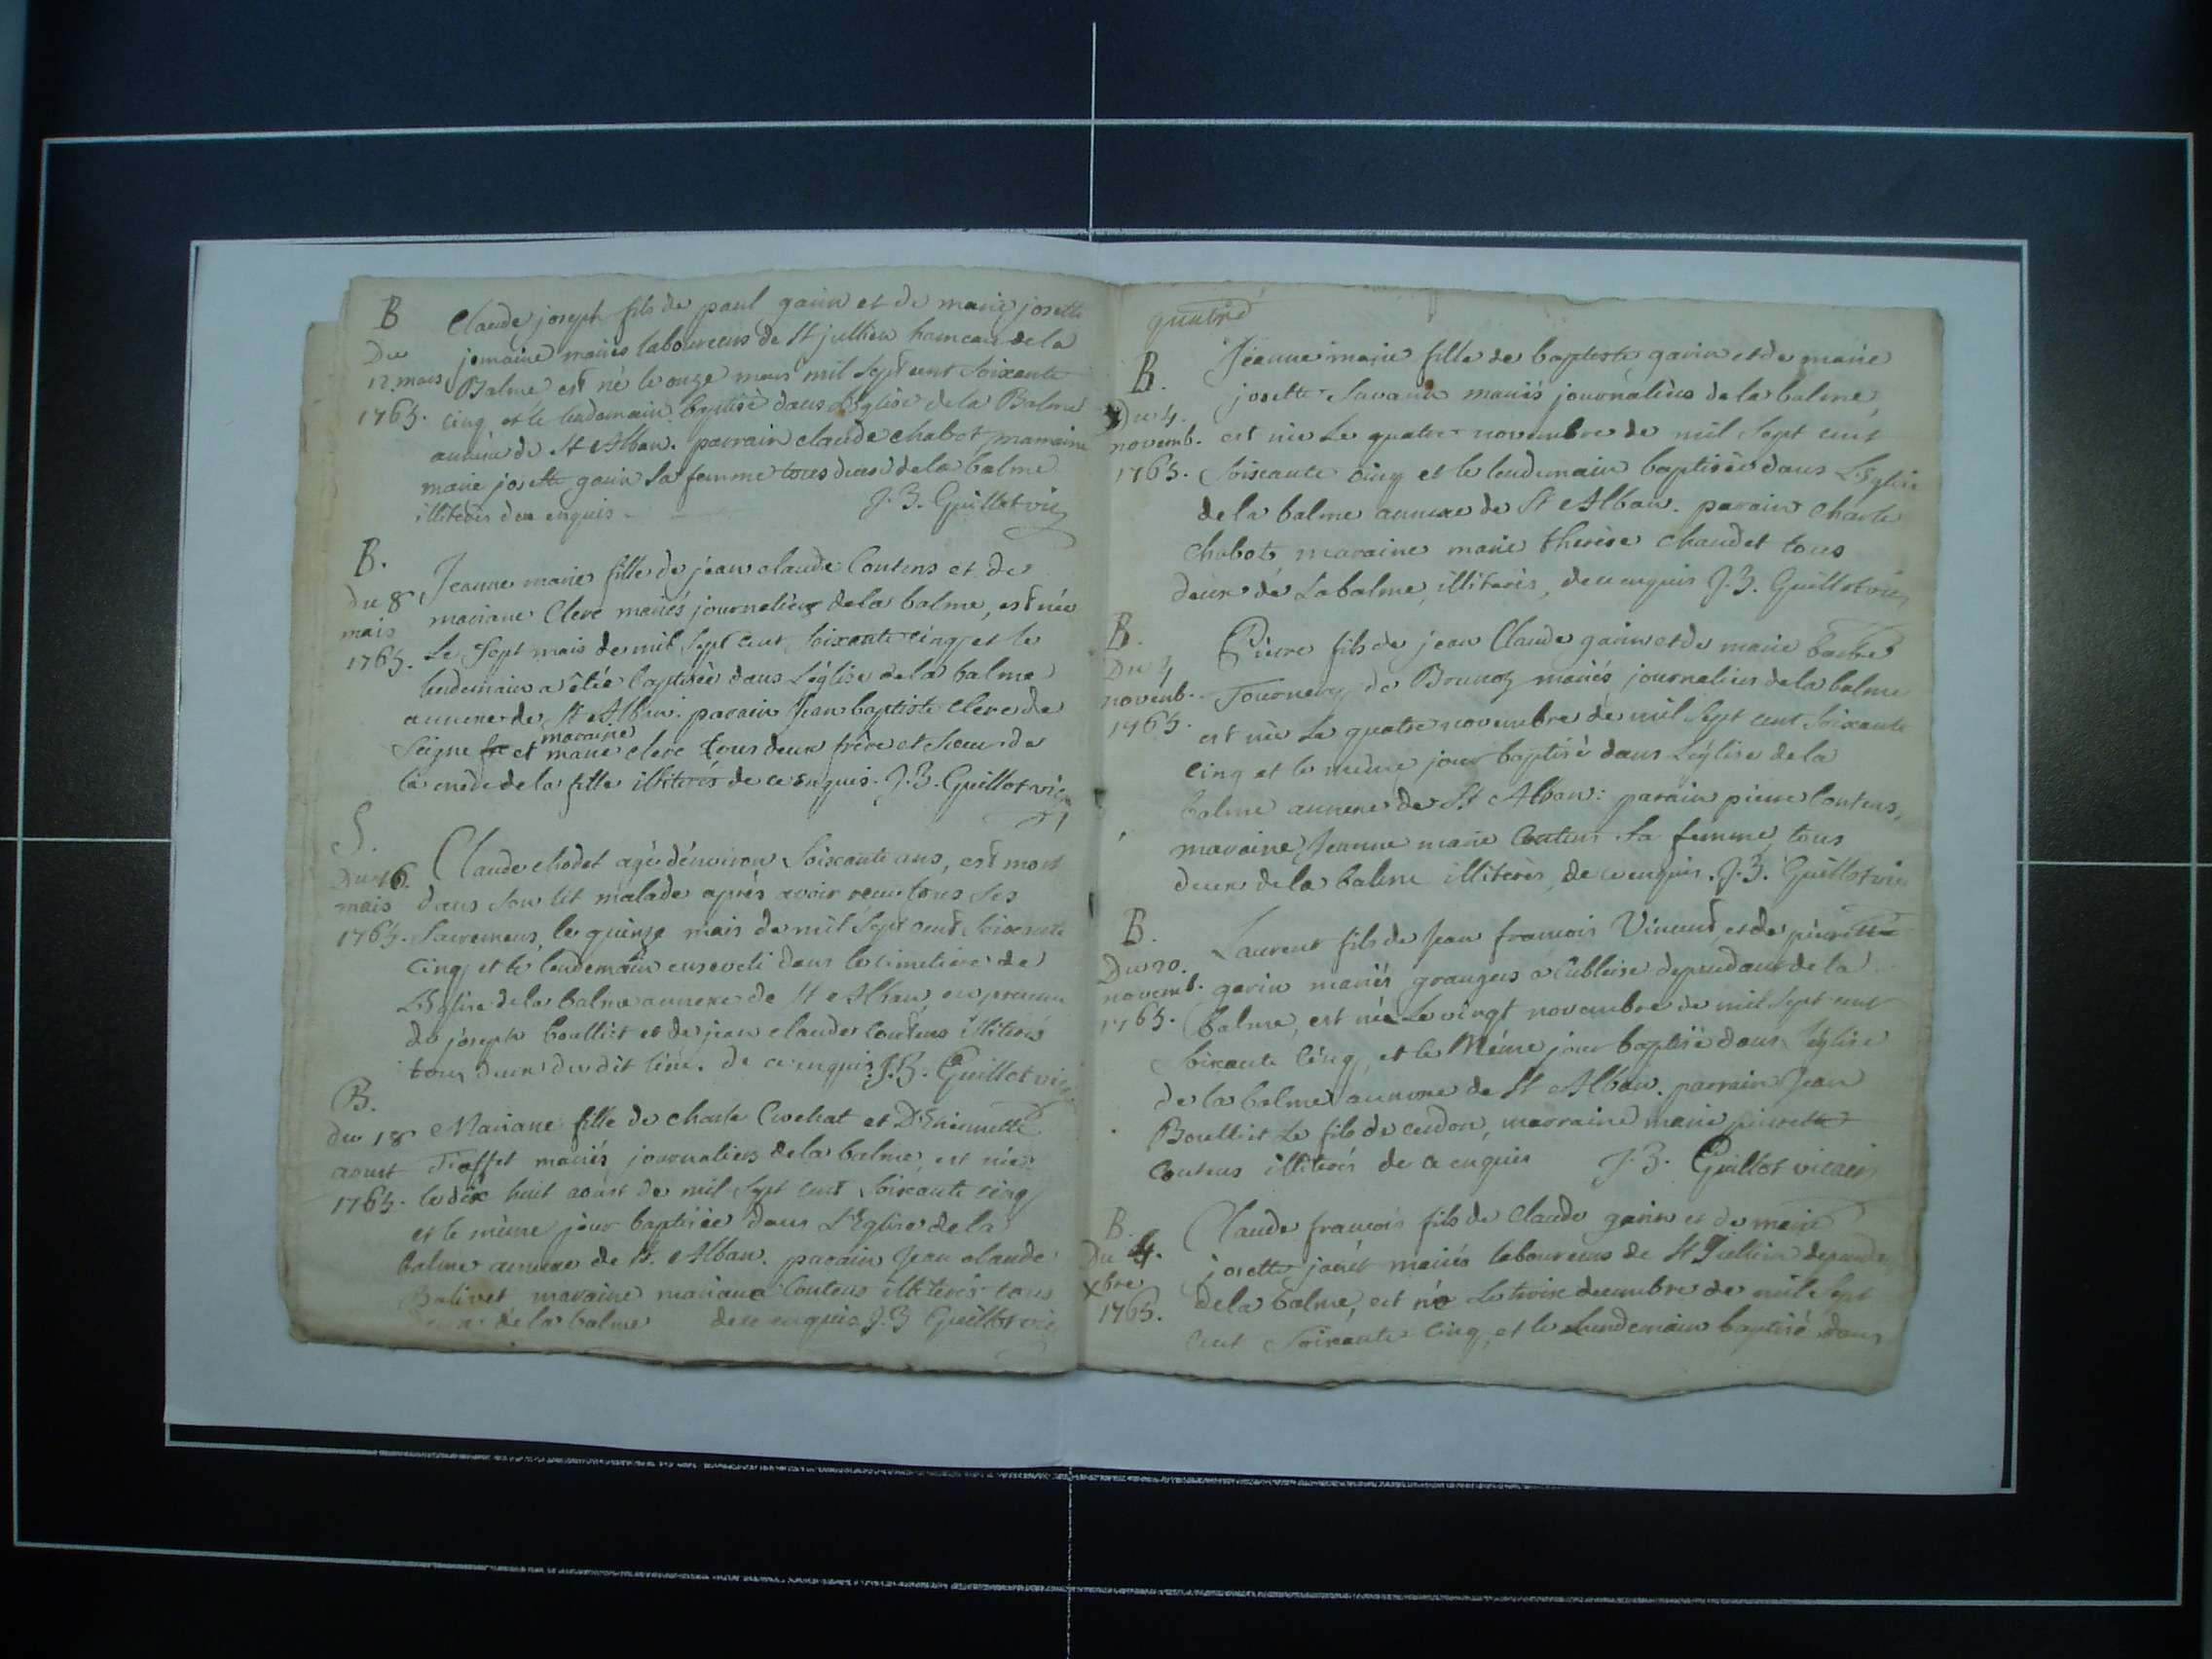 B
Du
12. mars
1765.
Claude joseph fils de paul gavin et de marie josette
jemaine mariés laboureurs de St jullien hameau de la
Balme est né le onze mars mil sept cent soixante
cinq et le lendemain baptisé dans l'église de la Balme
annexe de St Alban. parrain claude chabot, marraine
marie josette gavin sa femme tous deux de la balme
illiterés de ce enquis
J. B. Guillot vic
B.
du 8
mars
1765.
Jeanne marie fille de jean claude Coutens et de
mariane Clerc mariés journaliers de la balme, est née
Le sept mars de mil sept cent soixante cinq et le
lendemain a étée baptisée dans L'église de la balme
annexe de St Alban. parain Jean baptiste clerc de
maraine
Seigne et marie clerc tous deux frère et soeur de
la mère de la fille illiterés de ce enquis. J. B. Guillot vic
S.
Du 16.
mars
1765.
Claude chodet agé d'environ soixante ans, est mort
dans son lit malade après avoir reçu tous ses
sacremens, le quinze mars de mil sept cent soixante
cinq et le lendemain enseveli dans le cimetiere de
L'Eglise de la balme annexe de St Alban, en presence
de joseph boulliet et de jean claude coutens illiterés
tous deux du dit lieu. de ce enquis. J. B. Guillot vic
B.
du 18
aoust
1765.
Mariane fille de charle Crochat et D'Etiennette
mariés journaliers de la balme, est née
le dix huit aoust de mil sept cent soixante cinq
et le même jour baptisée dans L'Eglise de la
balme annexe de St. Alban. parain Jean claude
Balivet maraine mariane Coutens illiterés tous
deux de la balme de ce enquis J. B Guillot vic
quatre
B.
Du 4.
novemb.
1765.
Jeanne marie fille de baptiste gavin et de marie
josette Savarin mariés journaliers de la balme,
est née Le quatre novembre de mil sept cent
soixante cinq et le lendemain baptisée dans L'Eglise
de la balme annexe de St Alban. parain Charle
Chabot, maraine marie therèse chaudet tous
deux de Labalme, illiterés, de ce enquis J. B. Guillot vic
B.
Du 4
novemb.
1765.
Pierre fils de jean Claude gavin et de marie
Tournery de mariés journaliers de la balme
est née Le quatre novembre de mil sept cent soixante
cinq et le même jour baptisé dans L'église de la
balme annexe de St Alban: parain pierre Coutens,
maraine Jeanne marie Coutens sa femme, tous
deux de la balme illiterés, de ce enquis. J. B. Guillot vic
B.
Du 20.
novemb.
1765.
Laurent fils de Jean francois Vincent, et de pierrette
gavin mariés grangers a Cubloise dependant de la
balme, est née Le vingt novembre de mil sept cent
soixante cinq, et le Même jour baptisé dans l'église
de la balme annexe de St Alban. parrain Jean
Boulliet Le fils de cerdon, marraine marie pierrette
Coutens illiterés de ce enquis J. B. Guillot vicaire
B.
Du 4.
xbre
1765.
Claude françois fils de claude gavin et de marie
josette mariés laboureurs de St Jullien depend
de la balme, est né Le trois decembre de mil sept
cent soixante cinq, et le lendemain baptisé dans